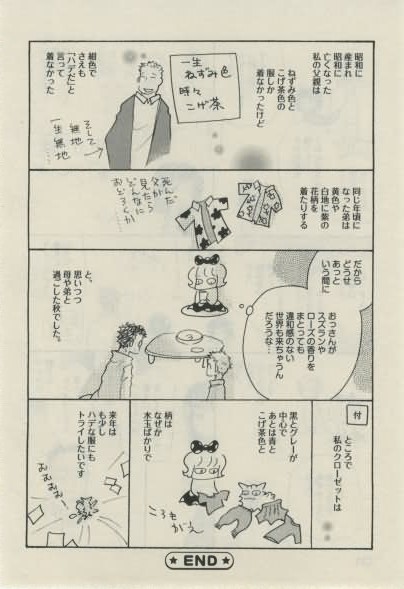 昭和に
産まれ
昭和に
亡くなった
私の父親は
ねずみ色と
こげ茶色の
服しか
着なかったけど
一生
ねずみ色
時々
こげ茶
紺色で
さえも
「ハデだ」と
言って
着なかった
そして
無地
一生無地…
同じ年頃に
なった弟は
黄色や
白地に紫の
花柄を
着たりする
死んだ
父が
見たら
どんなに
おどろくか…
だから
どうせ
あっと
いう間に
おっさんが
スズランや
ローズの香りを
まとっても
違和感のない
世界も来ちゃうん
だろうな…
と、
思いつつ
母や弟と
過ごした秋でした。
付
ところで
私のクローゼットは
黒とグレーが
中心で
あとは青と
こげ茶色と
柄は
なぜか
水玉ばかりで
ころも
がえ
来年は
も少し
ハデな服にも
トライしたいです
むむむむー
★END★